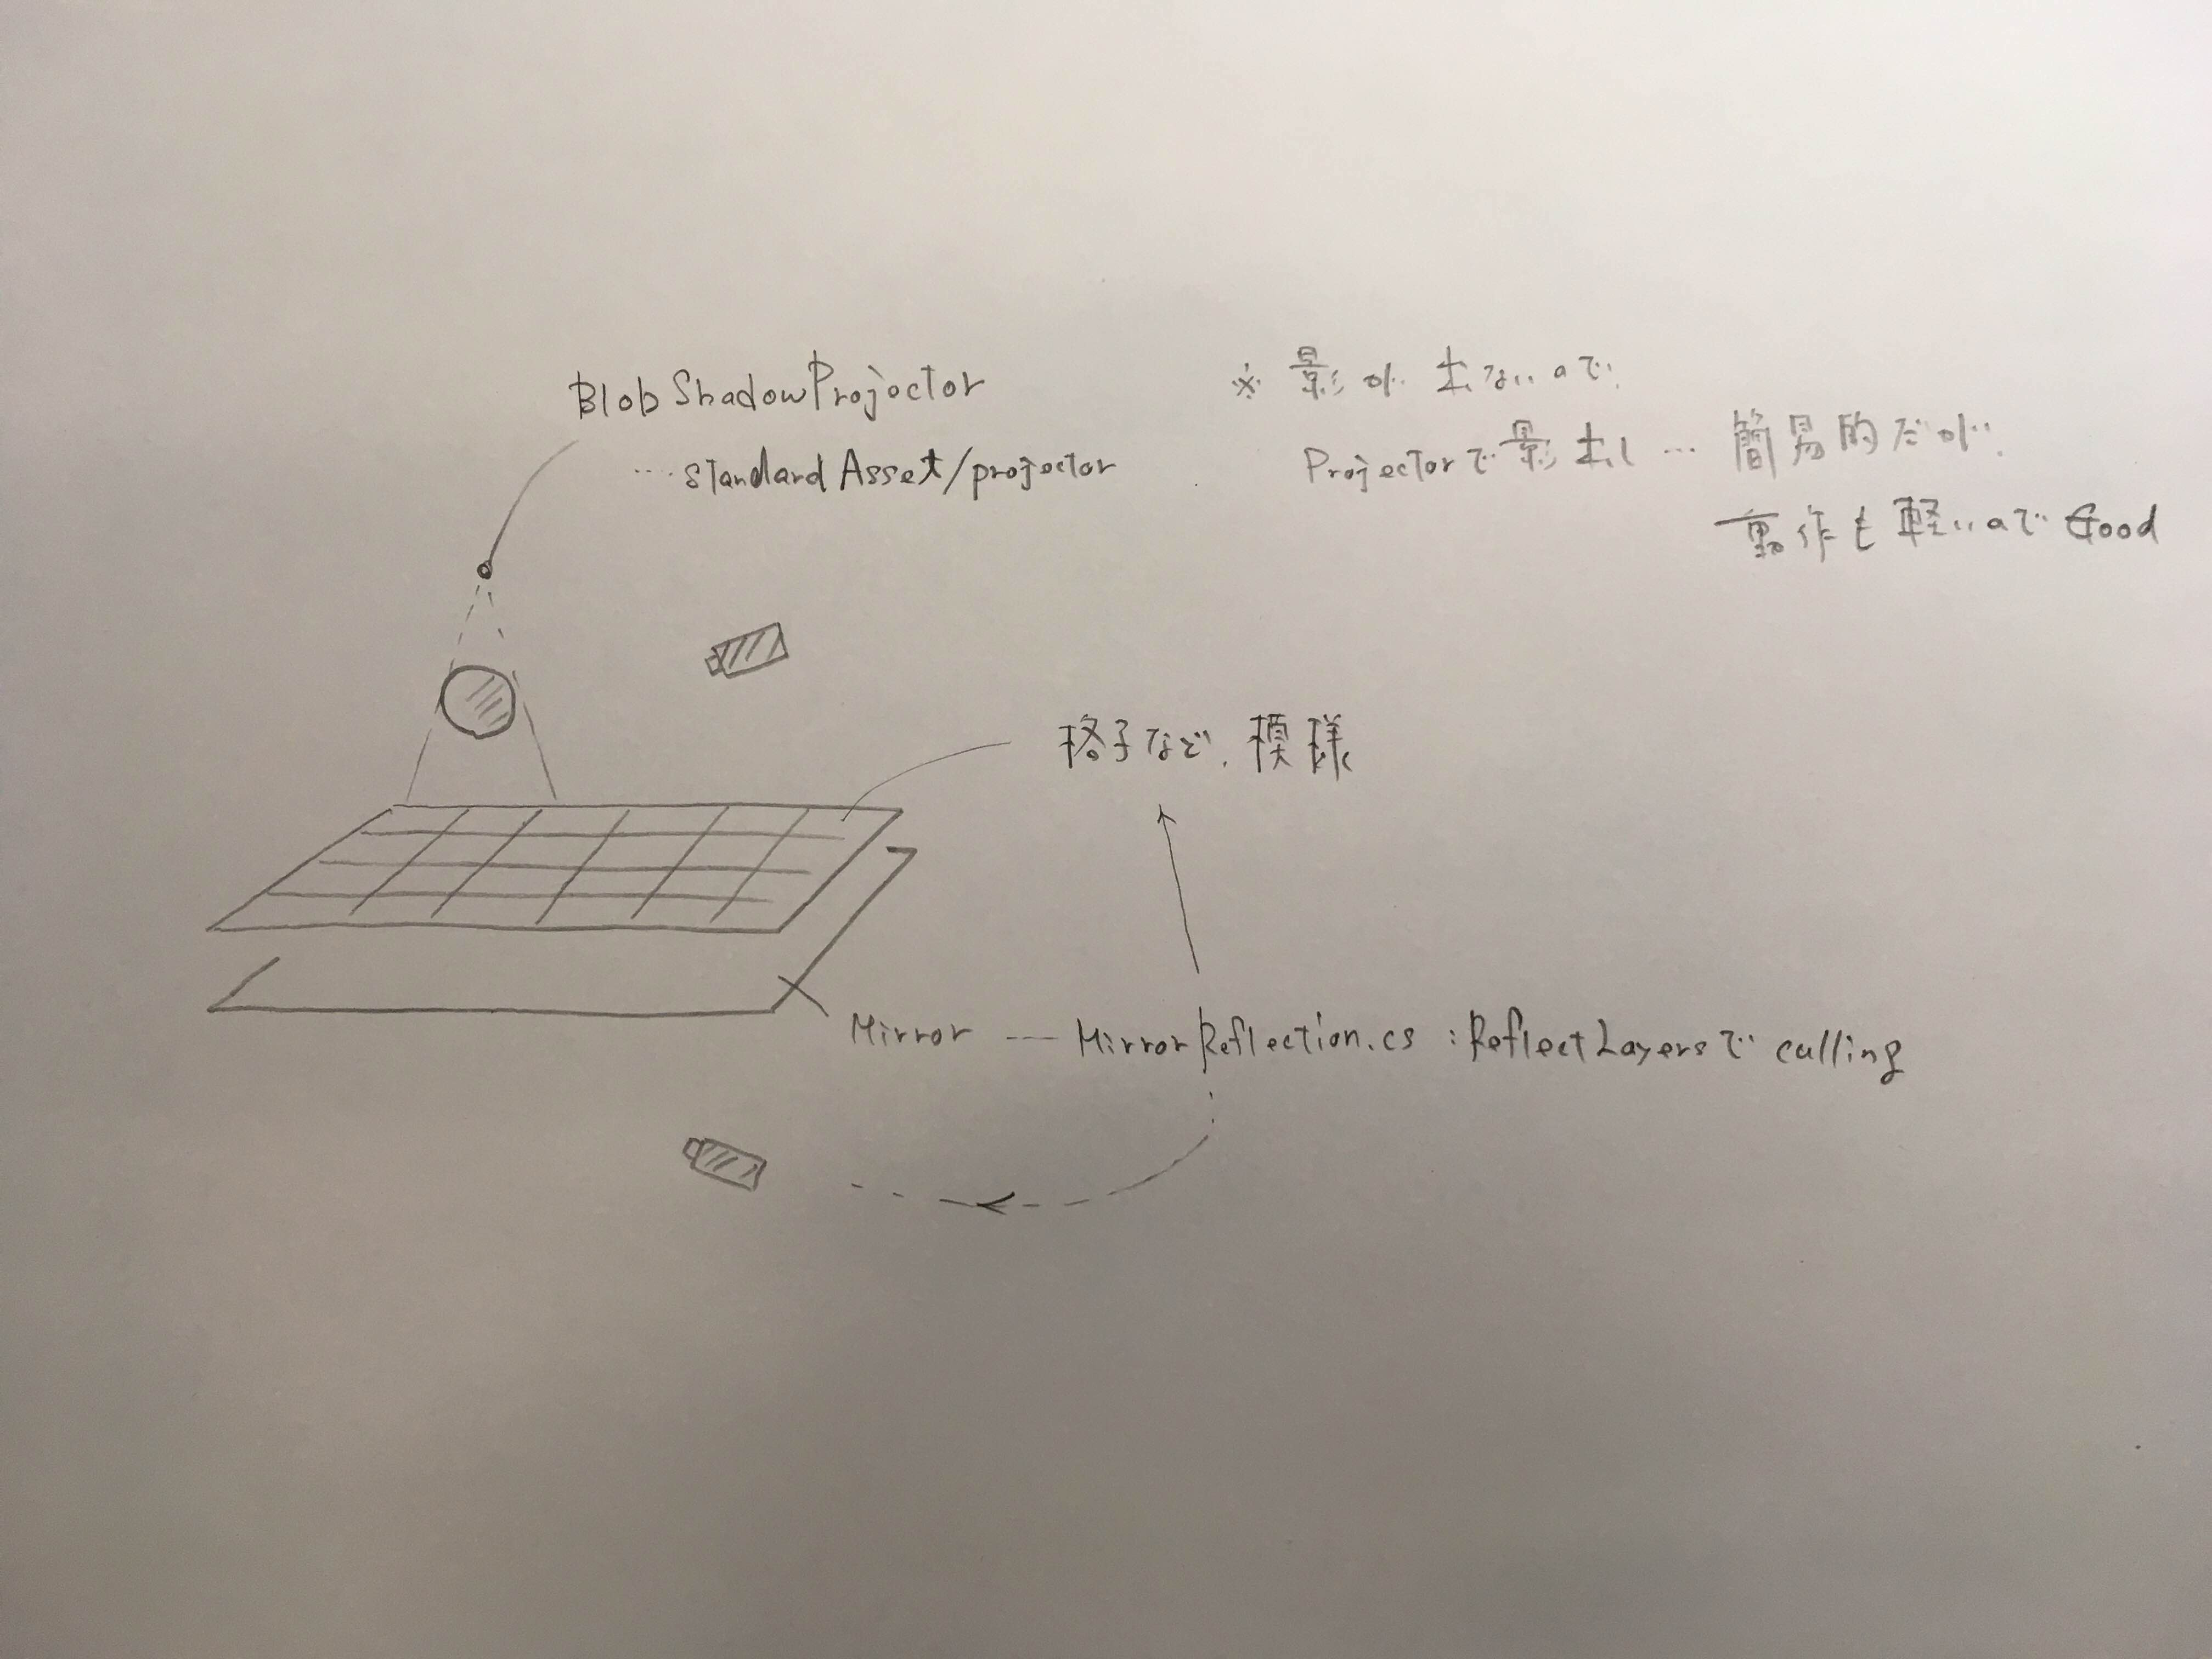 BlobShadowProjector
… standard Asset/projector
※ 影が出ないので、
Projectorで影出し … 簡易的だが、
動作も軽いので Good
格子など、模様
Mirror --- MirrorReflection.cs : ReflectLayersで culling